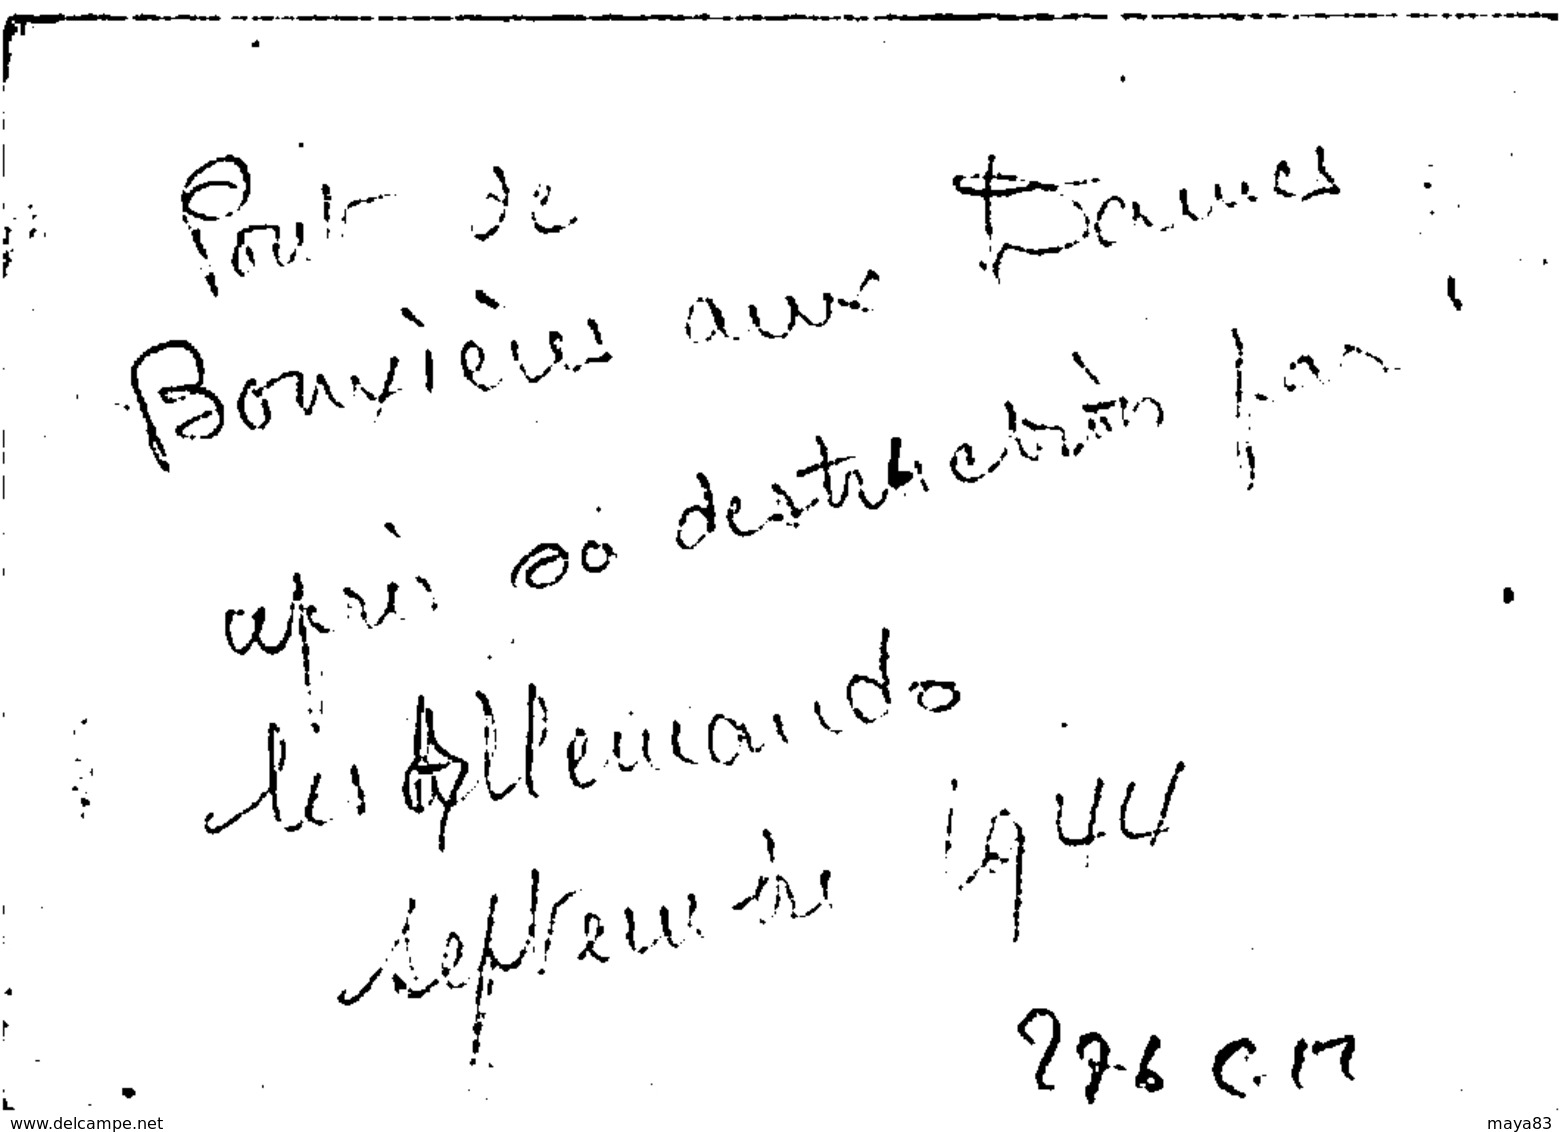 Pont de
Bouxières aux Dames
après sa destruction par
les Allemands
septembre 1944
www.delcampe.net
maya83